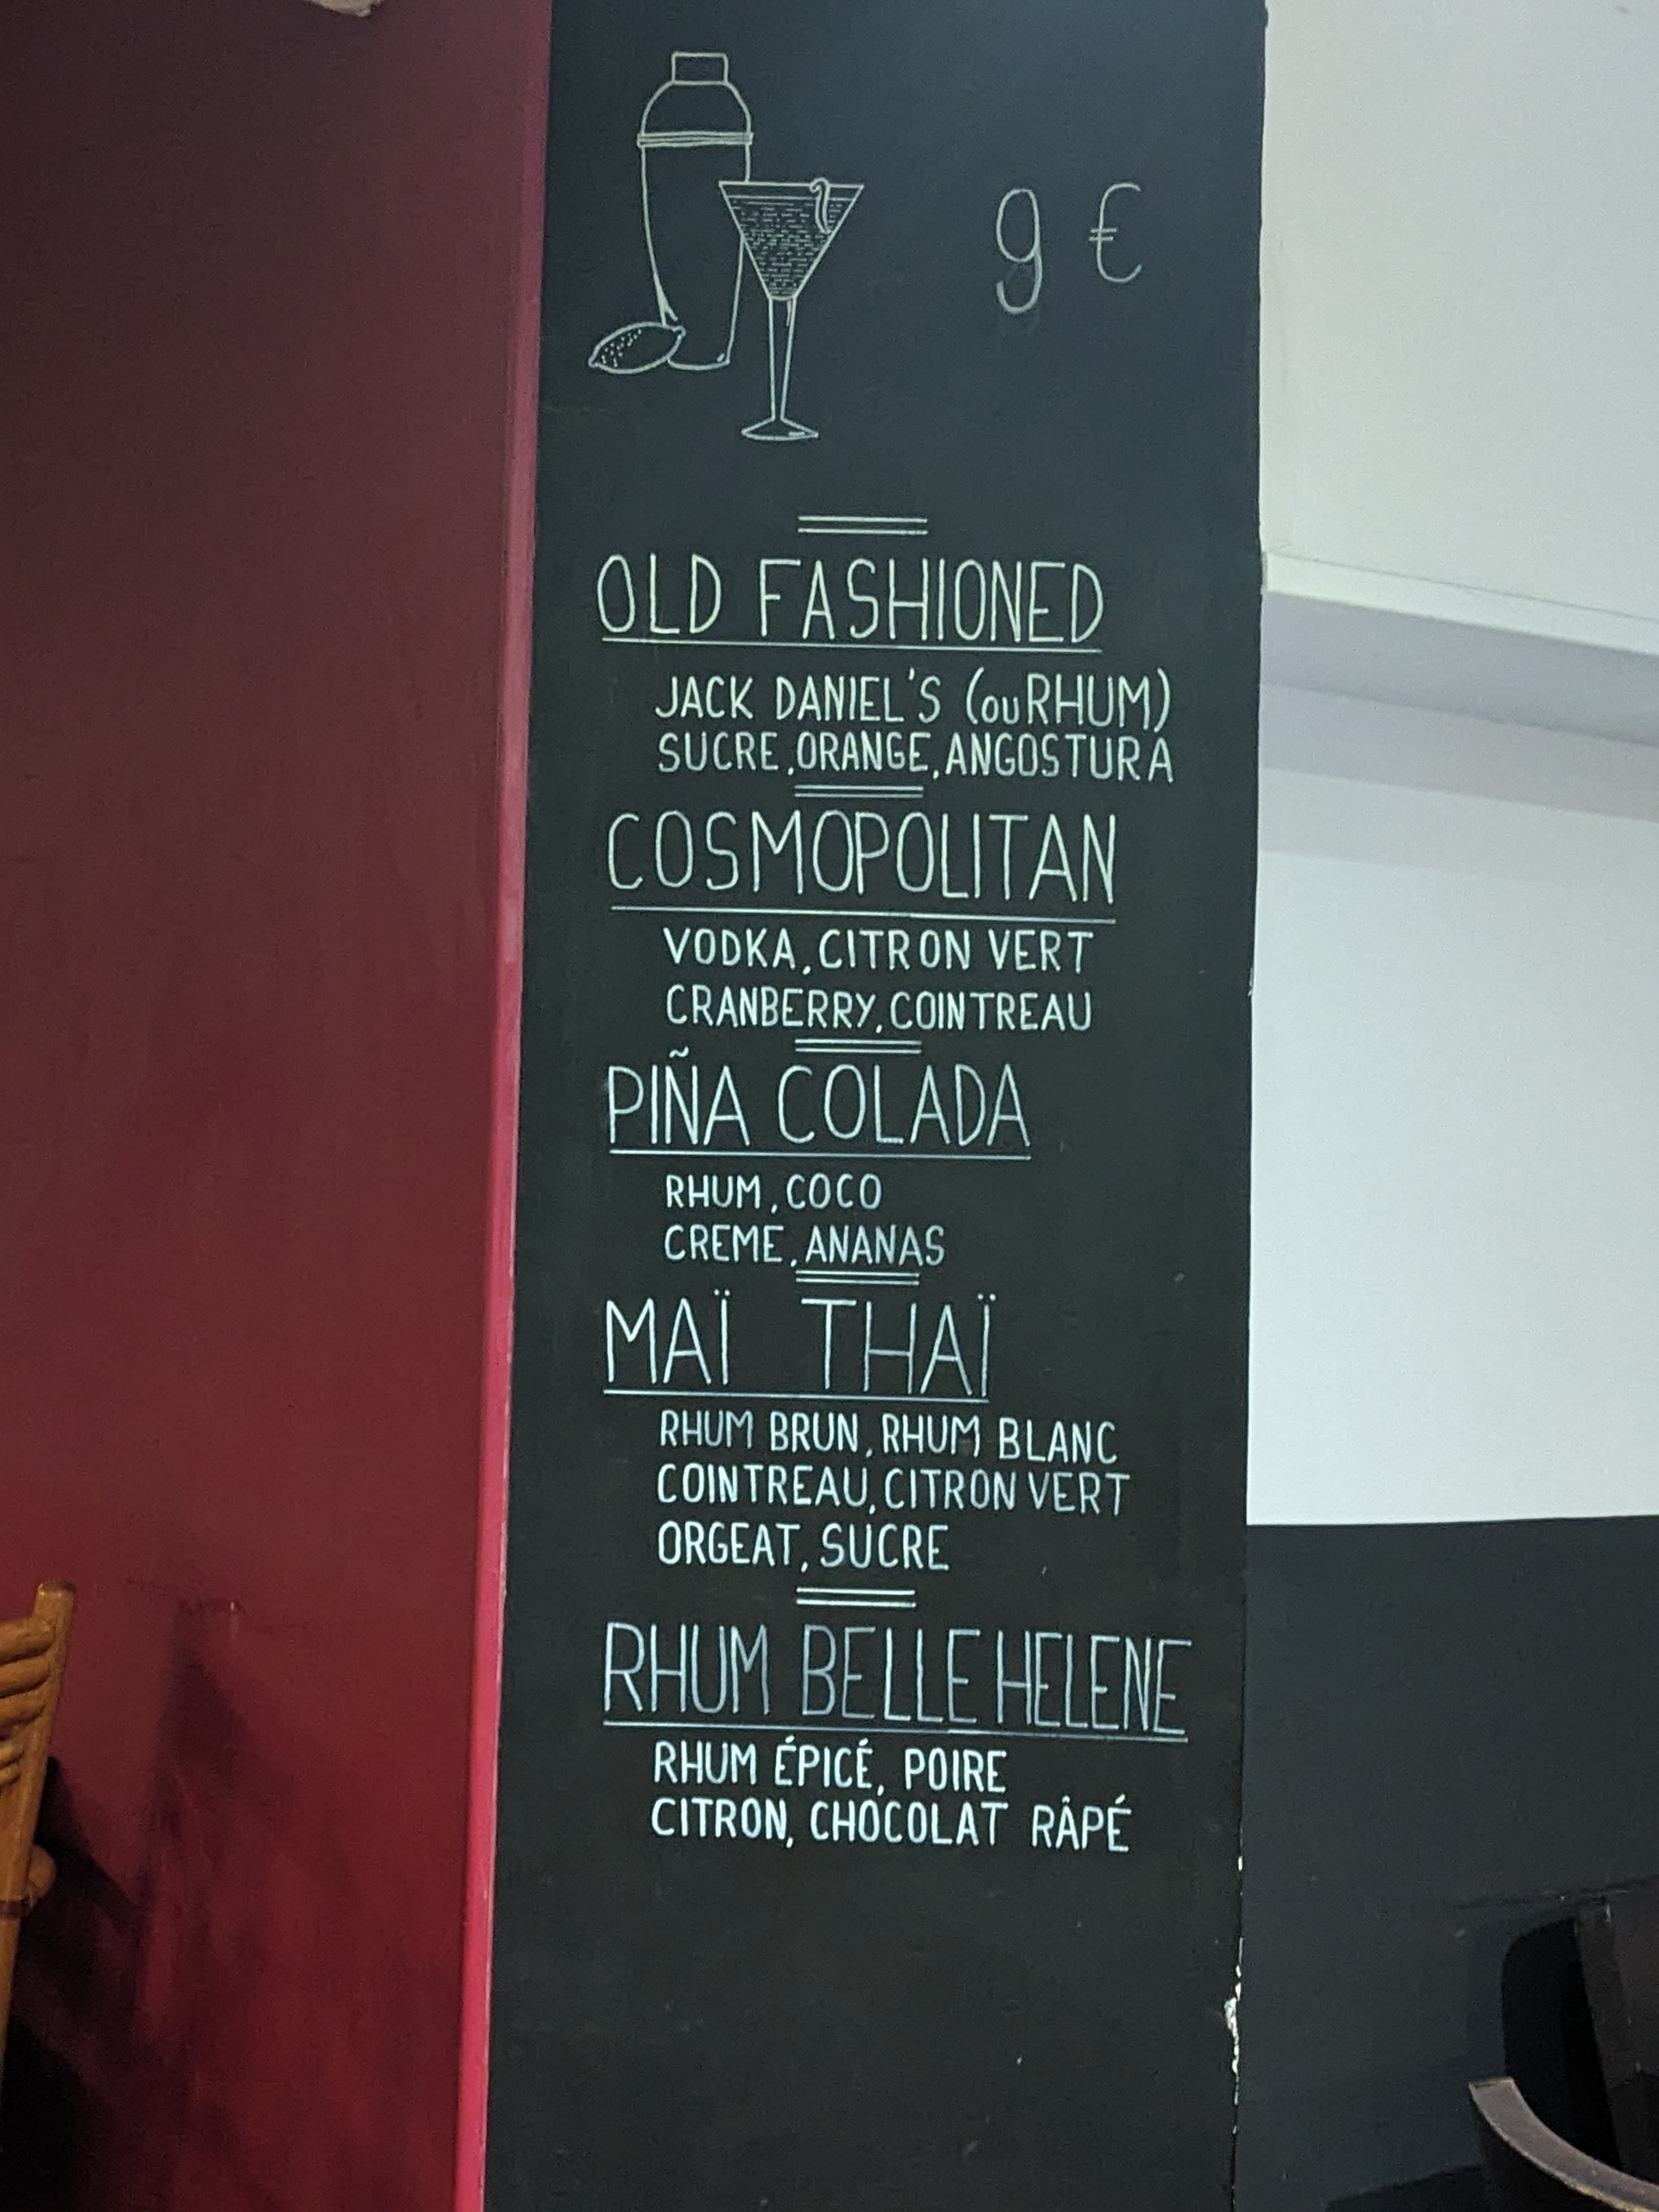 9 €
OLD FASHIONED
JACK DANIEL'S (ou RHUM)
SUCRE, ORANGE, ANGOSTURA
COSMOPOLITAN
VODKA, CITRON VERT
CRANBERRY, COINTREAU
PIÑA COLADA
RHUM, COCO
CREME, ANANAS
MAÏ THAÏ
RHUM BRUN, RHUM BLANC
COINTREAU, CITRON VERT
ORGEAT, SUCRE
RHUM BELLE HELENE
RHUM ÉPICÉ, POIRE
CITRON, CHOCOLAT RÂPÉ